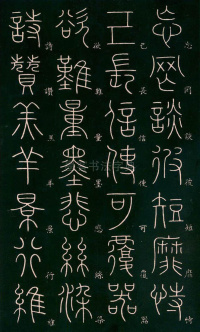 忘罔談彼短靡恃
己長信使可覆器
欲難量墨悲絲染
詩讚羔羊景行維